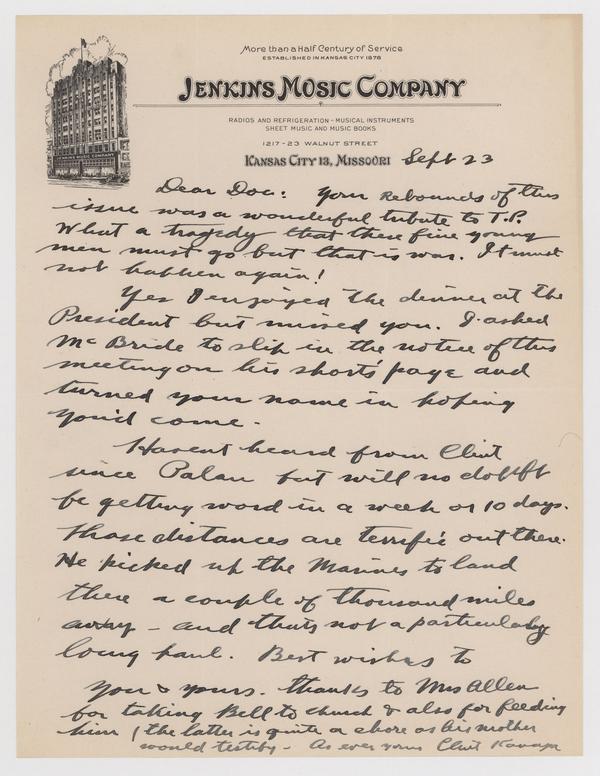 More than a Half Century of Service
ESTABLISHED IN KANSAS CITY 1878
JENKINS MUSIC COMPANY
RADIOS AND REFRIGERATION - MUSICAL INSTRUMENTS
SHEET MUSIC AND MUSIC BOOKS
1217-23 WALNUT STREET
KANSAS CITY 13, MISSOURI Sept 23
Dear Doc: Your Rebounds of this
issue was a wonderful tribute to T.P.
What a tragedy that these fine young
men must go but that is war. It must
not happen again!
Yes I enjoyed the dinner at the
President but missed you. I asked
McBride to slip in the notice of this
meeting on his sports page and
turned your name in hoping
you'd come.
Havent heard from Clint
since Palau but will no doubt
be getting word in a week or 10 days.
Those distances are terrific out there.
He picked up the Marines to land
there a couple of thousand miles
away - and thats not a particularly
long haul. Best wishes to
you & yours. Thanks to Mrs Allen
for taking Bill to church & also for feeding
him (the latter is quite a chore as his mother
would testify - As ever yours Clint